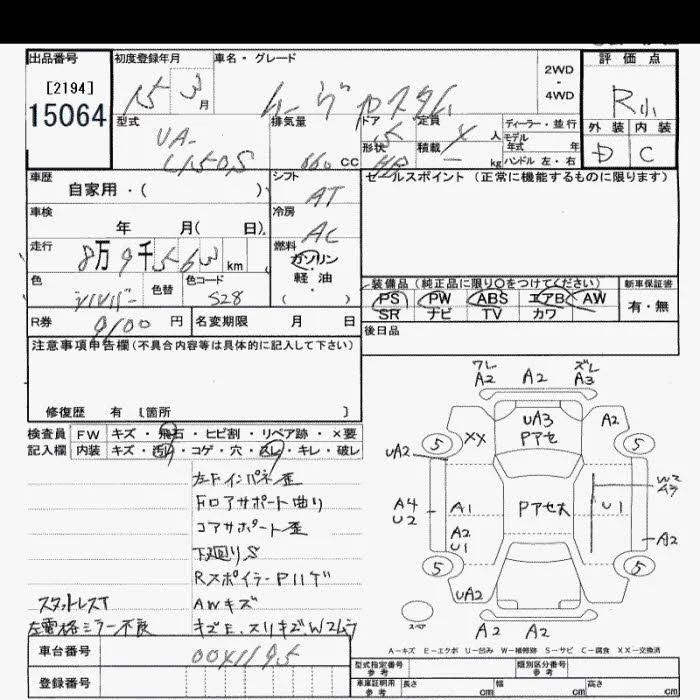 出品番号
[2194]
15064
初度登録年月
15 3 月
車名・グレード
ムーヴカスタム
2WD
・
4WD
評価点
R小
外装 内装
D C
型式
UA-
L150S
排気量
660 CC
ドア
5
定員
4 人
形状
HB
積載
— kg
ディーラー・並行
モデル
年式 年
ハンドル 左・右
車歴
自家用・( )
シフト
AT
セールスポイント (正常に機能するものに限ります)
車検
年 月( 日)
冷房
AC
走行
8万9千563 km
燃料
ガソリン
軽油
( )
色
シルバー
色替
色コード
S28
装備品 (純正品に限り○をつけてください)
PS PW ABS エアB AW
SR ナビ TV カワ
新車保証書
有・無
R券
9100 円
名変期限 月 日
後日品
注意事項申告欄(不具合内容等は具体的に記入して下さい)
修復歴 有 [箇所 ]
検査員
記入欄
FW キズ・飛石・ヒビ割・リペア跡・×要
内装 キズ・汚れ・コゲ・穴・スレ・キレ・破レ
左Fインパネ歪
FロアサポートE曲り
コアサポート歪
下廻りS
RスポイラーPハゲ
スタットレスT
AWキズ
左電格ミラー不良
キズE、スリキズ、Wムラ
ワレ
A2
A2
ズレ
A3
UA3
Pアセ
A2
XX
5
5
UA2
W2
A3
A4
U2
A1
Pアセ大
U1
A2
U1
A2
5
5
UA2
スペア
A2
A2
A-キズ E-エクボ U-凹み W-補修跡 S-サビ C-腐食 XX-交換済
車台番号
登録番号
型式指定番号
参考
類別区分番号
参考
車庫証明用
参考
長さ cm
幅 cm
高さ cm